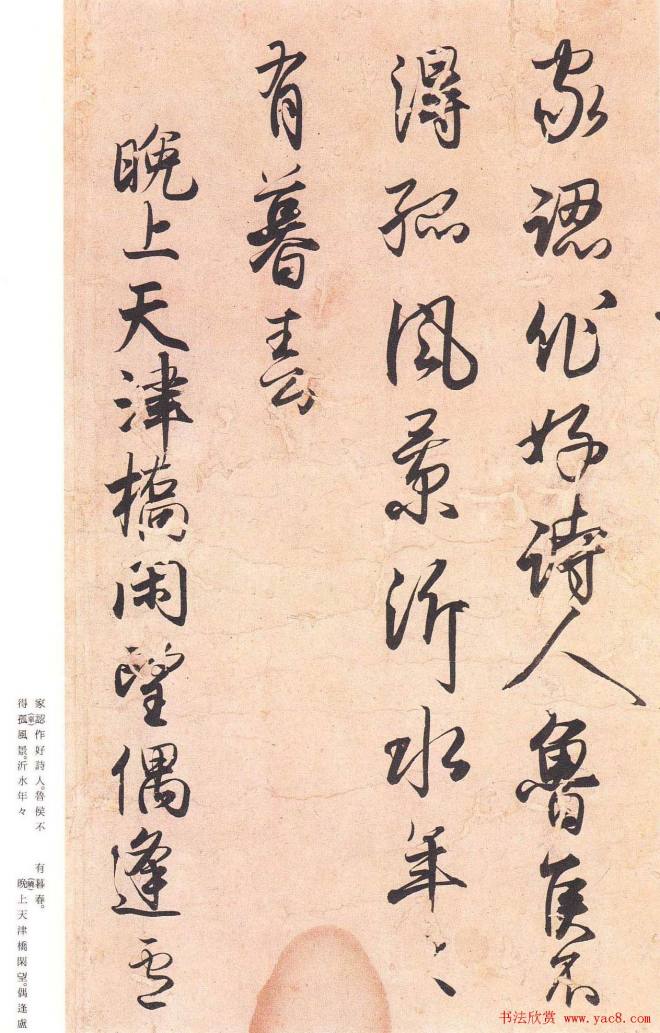 家認作好詩人魯侯不
得孤風景沂水年々
有暮春
晚上天津橋閑望偶逢盧
家認作好詩人。魯侯不
得孤風景。沂水年々
有暮春。
晚上天津橋閑望。偶逢盧
书法欣赏 www.yac8.com